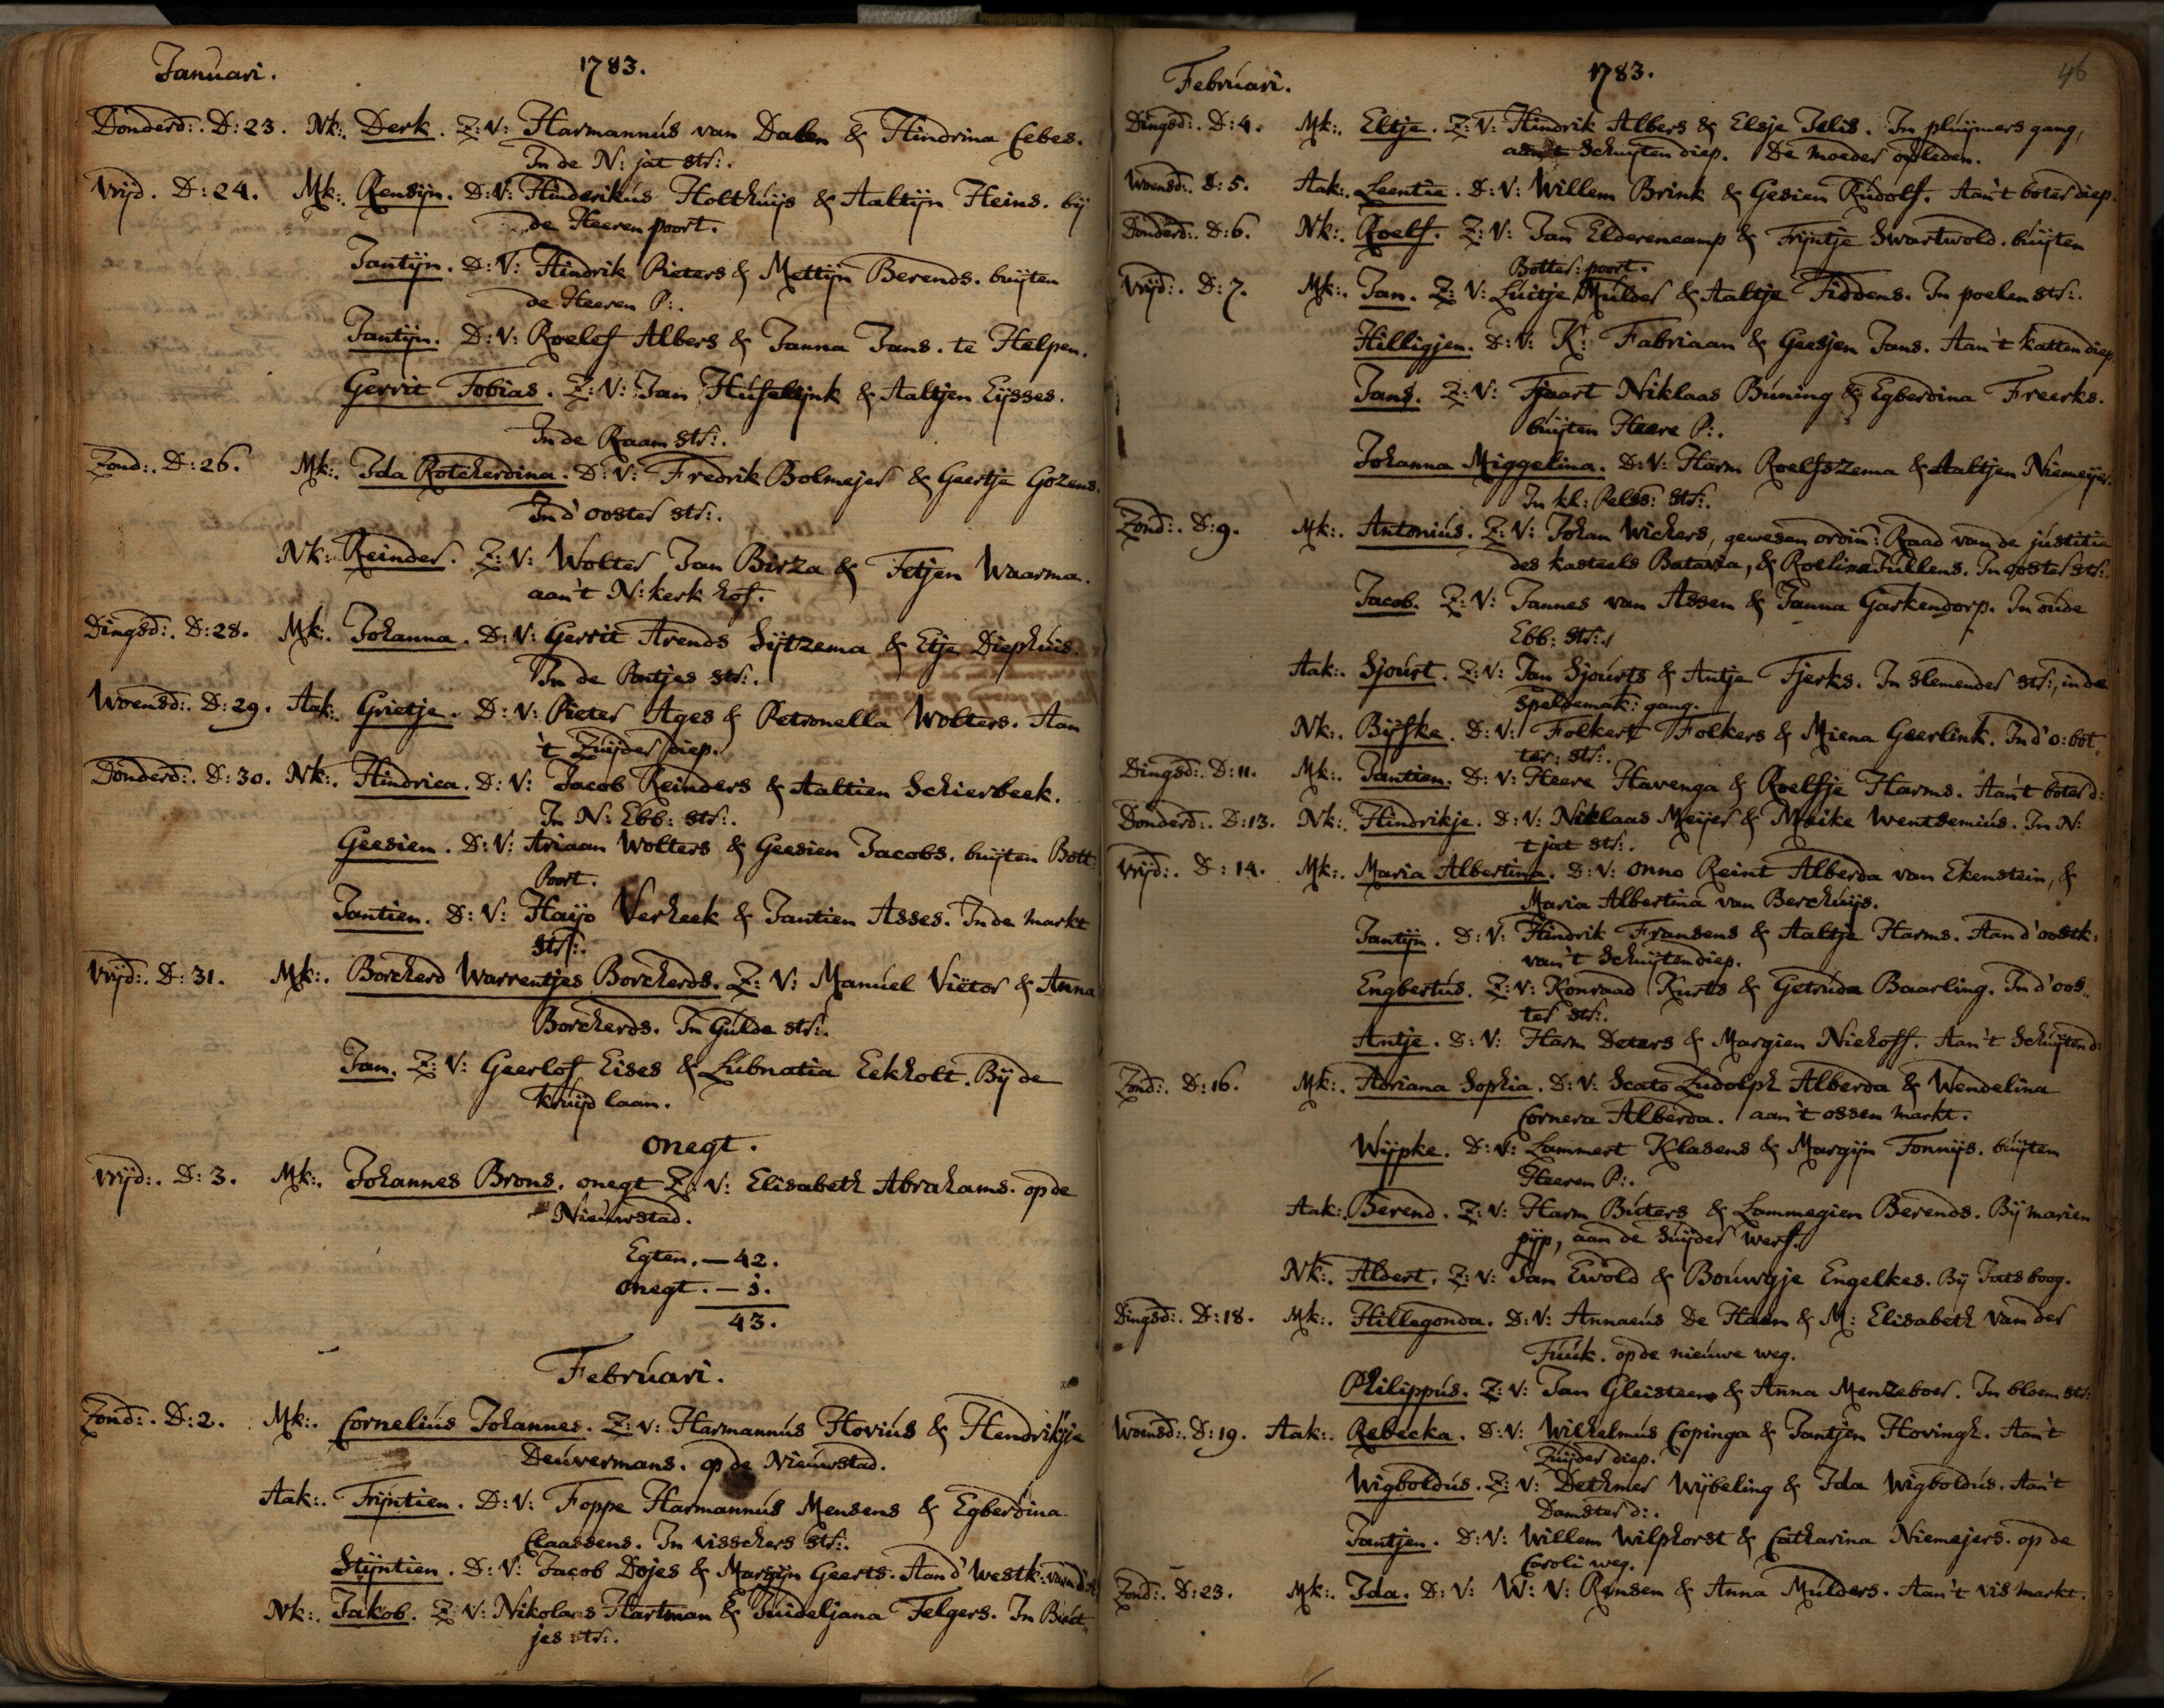 Januari. 1783.
Donderd:. D: 23. Nk:. Derk. Z: V: Harmannús van Dalen & Hindrina Cebes.
In de N: jat str:.
Vrijd. D: 24. Mk:. Rensijn. D: V: Hinderikús Holthúijs & Aaltijn Heins. bij
de Heeren poort.
Jantijn. D: V: Hindrik Pieters & Mettijn Berends. buijten
de Heeren P:.
Jantijn. D: V: Roelef Albers & Janna Jans. te Helpen.
Gerrit Tobias. Z: V: Jan & Aaltjen Eijsses.
In de Raam str:.
Zond:. D: 26. Mk:. Ida Rotcherdina. D: V: Fredrik Bolmejer & Geertje Gozens.
In d'ooster str:.
Nk: Reinder. Z: V: Wolter Jan Birza & Fetjen Waarma.
aan't N: kerk hof.
Dingsd:. D: 28. Mk:. Johanna. D: V: Gerrit Arends Sijtzema & Etje Diephúis.
In de Pontjes str:.
Woensd:. D: 29. Aak:. Grietje. D: V: Pieter Ages & Petronella Wolters. Aan
't Zuijder diep.
Donderd:. D: 30. Nk:. Hindrica. D: V: Jacob Reinders & Aaltien Schierbeek.
In N: Ebb: str:.
Geesien. D: V: Ariaan Wolters & Geesien Jacobs. buijten Bott:
Poort.
Jantien. D: V: Haijo Verheek & Jantien Asses. In de Markt
str:.
Vrijd:. D: 31. Mk:. Borcherd Warrentjes Borcherds. Z: V: Manuel Viëtor & Anna
Borcherds. In Gulde str:.
Jan. Z: V: Geerlof Eises & Lubnatia Eekholt. Bij de
kruijd laan.
onegt.
Vrijd:. D: 3. Mk:. Johannes Brons. onegt Z: V: Elisabeth Abrahams. op de
Nieuwstad.
Egten. — 42.
onegt. — 1.
43.
Februari.
Zond:. D: 2. Mk:. Cornelius Johannes. Z: V: Harmannús Hoviús & Hendrikje
Deuvermans. op de Nieuwstad.
Aak:. Trijntien. D: V: Foppe Harmannús Mensens & Egberdina
Claassens. In visschers str:.
Stijntien. D: V: Jacob Dojes & Margijn Geerts. Aan d' westk:
Nk:. Jakob. Z: V: Nikolaas Hartman & Felgers. In
jes str:.
Februari. 1783. 46
Dingsd:. D: 4. Mk:. Eltje. Z: V: Hindrik Albers & Elsje Jelis. In pluijmers gang,
aan't Schuijten diep. De moeder overleden.
Woensd:. D: 5. Aak:. Leentie. D: V: Willem Brink & Gesien Rúdolf. Aan't boter diep.
Donderd:. D: 6. Nk:. Roelf. Z: V: Jan Elderencamp & Trijntje Swartwold. buijten
Botter: poort.
Vrijd:. D: 7. Mk:. Jan. Z: V: Luitje Múlder & Aaltje Fiddens. In poelen str:.
Hilligjen. D: V: K: Fabriaan & Geesjen Jans. Aan't katten diep
Jans. Z: V: Tjaart Niklaas Búning & Egberdina Freerks.
buijten Heere P:.
Johanna Miggelina. D: V: Harm Roelfszema & Aaltjen Niemeijer.
In kl: Pelss: str:.
Zond:. D: 9. Mk:. Antonius. Z: V: Johan Wichers, gewesen ordin: Raad van de justitie
des kasteels Batavia, & Roelina Tullens. In ooster str:.
Jacob. Z: V: Jannes van Assen & Janna Garkendorp. In oude
Ebb: str:.
Aak:. Sjourt. Z: V: Jan Sjourts & Antje Tjerks. In slemender str:, in de
Speldemak: gang.
Nk:. Bijfke. D: V: Folkert Folkers & Miena Geerlink. In d'o: bot-
ter: str:.
Dingsd:. D: 11. Mk:. Jantien. D: V: Heere Havenga & Roelfje Harms. Aan't boter d:
Donderd:. D: 13. Nk:. Hindrikje. D: V: Niklaas Meijer & Meike Wentsemiús. In N:
tjat str:.
Vrijd:. D: 14. Mk:. Maria Albertina. D: V: Onno Reint Alberda van Ekenstein, &
Maria Albertina van Berchúijs.
Jantijn. D: V: Hindrik Fransens & Aaltje Harms. Aan d'oostk:
van't Schuijten diep.
Engbertús. Z: V: Konraad Kurts & Getruda Baarling. In d'oos-
ter str:.
Antje. D: V: Harm Deters & Margien Niehoff. Aan't Schuijten d:
Zond:. D: 16. Mk:. Adriana Sophia. D: V: Scato Ludolph Alberda & Wendelina
Cornera Alberda. aan't ossen markt.
Wijpke. D: V: Lammert Klasens & Margijn Tonnijs. buijten
Heeren P:.
Aak:. Berend. Z: V: Harm Búters & Lammegien Berends. Bij marien
pijp, aan de Suijder werf.
Nk:. Aldert. Z: V: Jan Ewold & Bouwgje Engelkes. Bij Jats boog.
Dingsd:. D: 18. Mk:. Hillegonda. D: V: Annaeús De Haen & M: Elisabeth van der
Fúúk. op de nieuwe weg.
Philippús. Z: V: Jan Gleisteen & Anna Menzeboer. In bloem str:
Woensd:. D: 19. Aak:. Rebecka. D: V: Wilhelmus Copinga & Jantjen Hovingh. Aan't
Zuijder diep.
Wigboldús. Z: V: Dethmer Wijbeling & Ida Wigboldús. Aan't
Damster d:.
Jantjen. D: V: Willem Wilphorst & Catharina Niemejers. op de
Caroli weg.
Zond:. D: 23. Mk:. Ida. D: V: W: V: Rensen & Anna Mulders. Aan't vis markt.